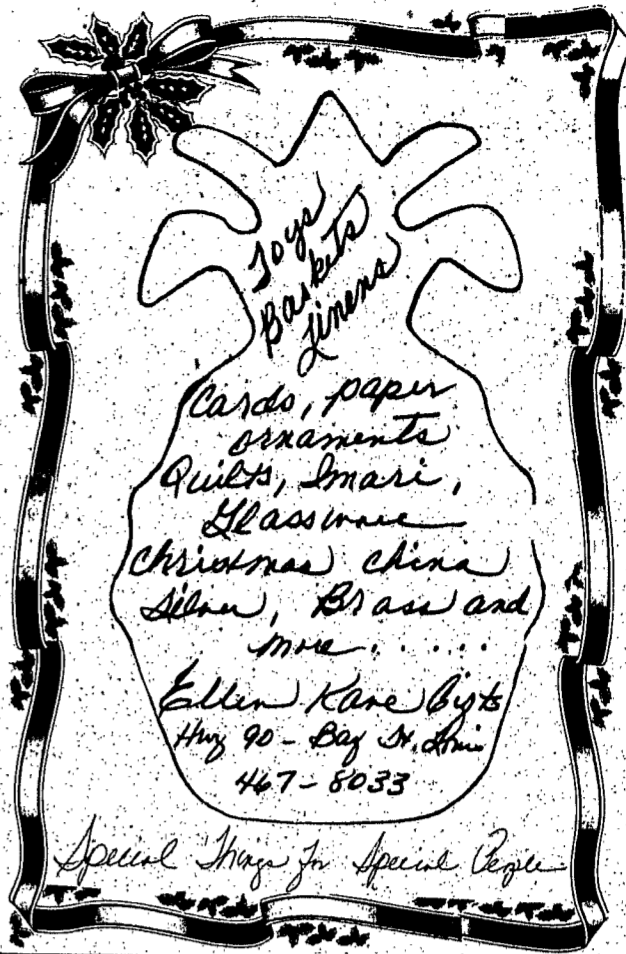 Toys
Baskets
Linens
Cards, paper
ornaments
Quilts, Imari,
Glassware
Christmas china
Silver, Brass and
more . . . . .
Ellen Kane Gifts
Hwy 90 - Bay St. Louis
467-8033
Special Things for Special People